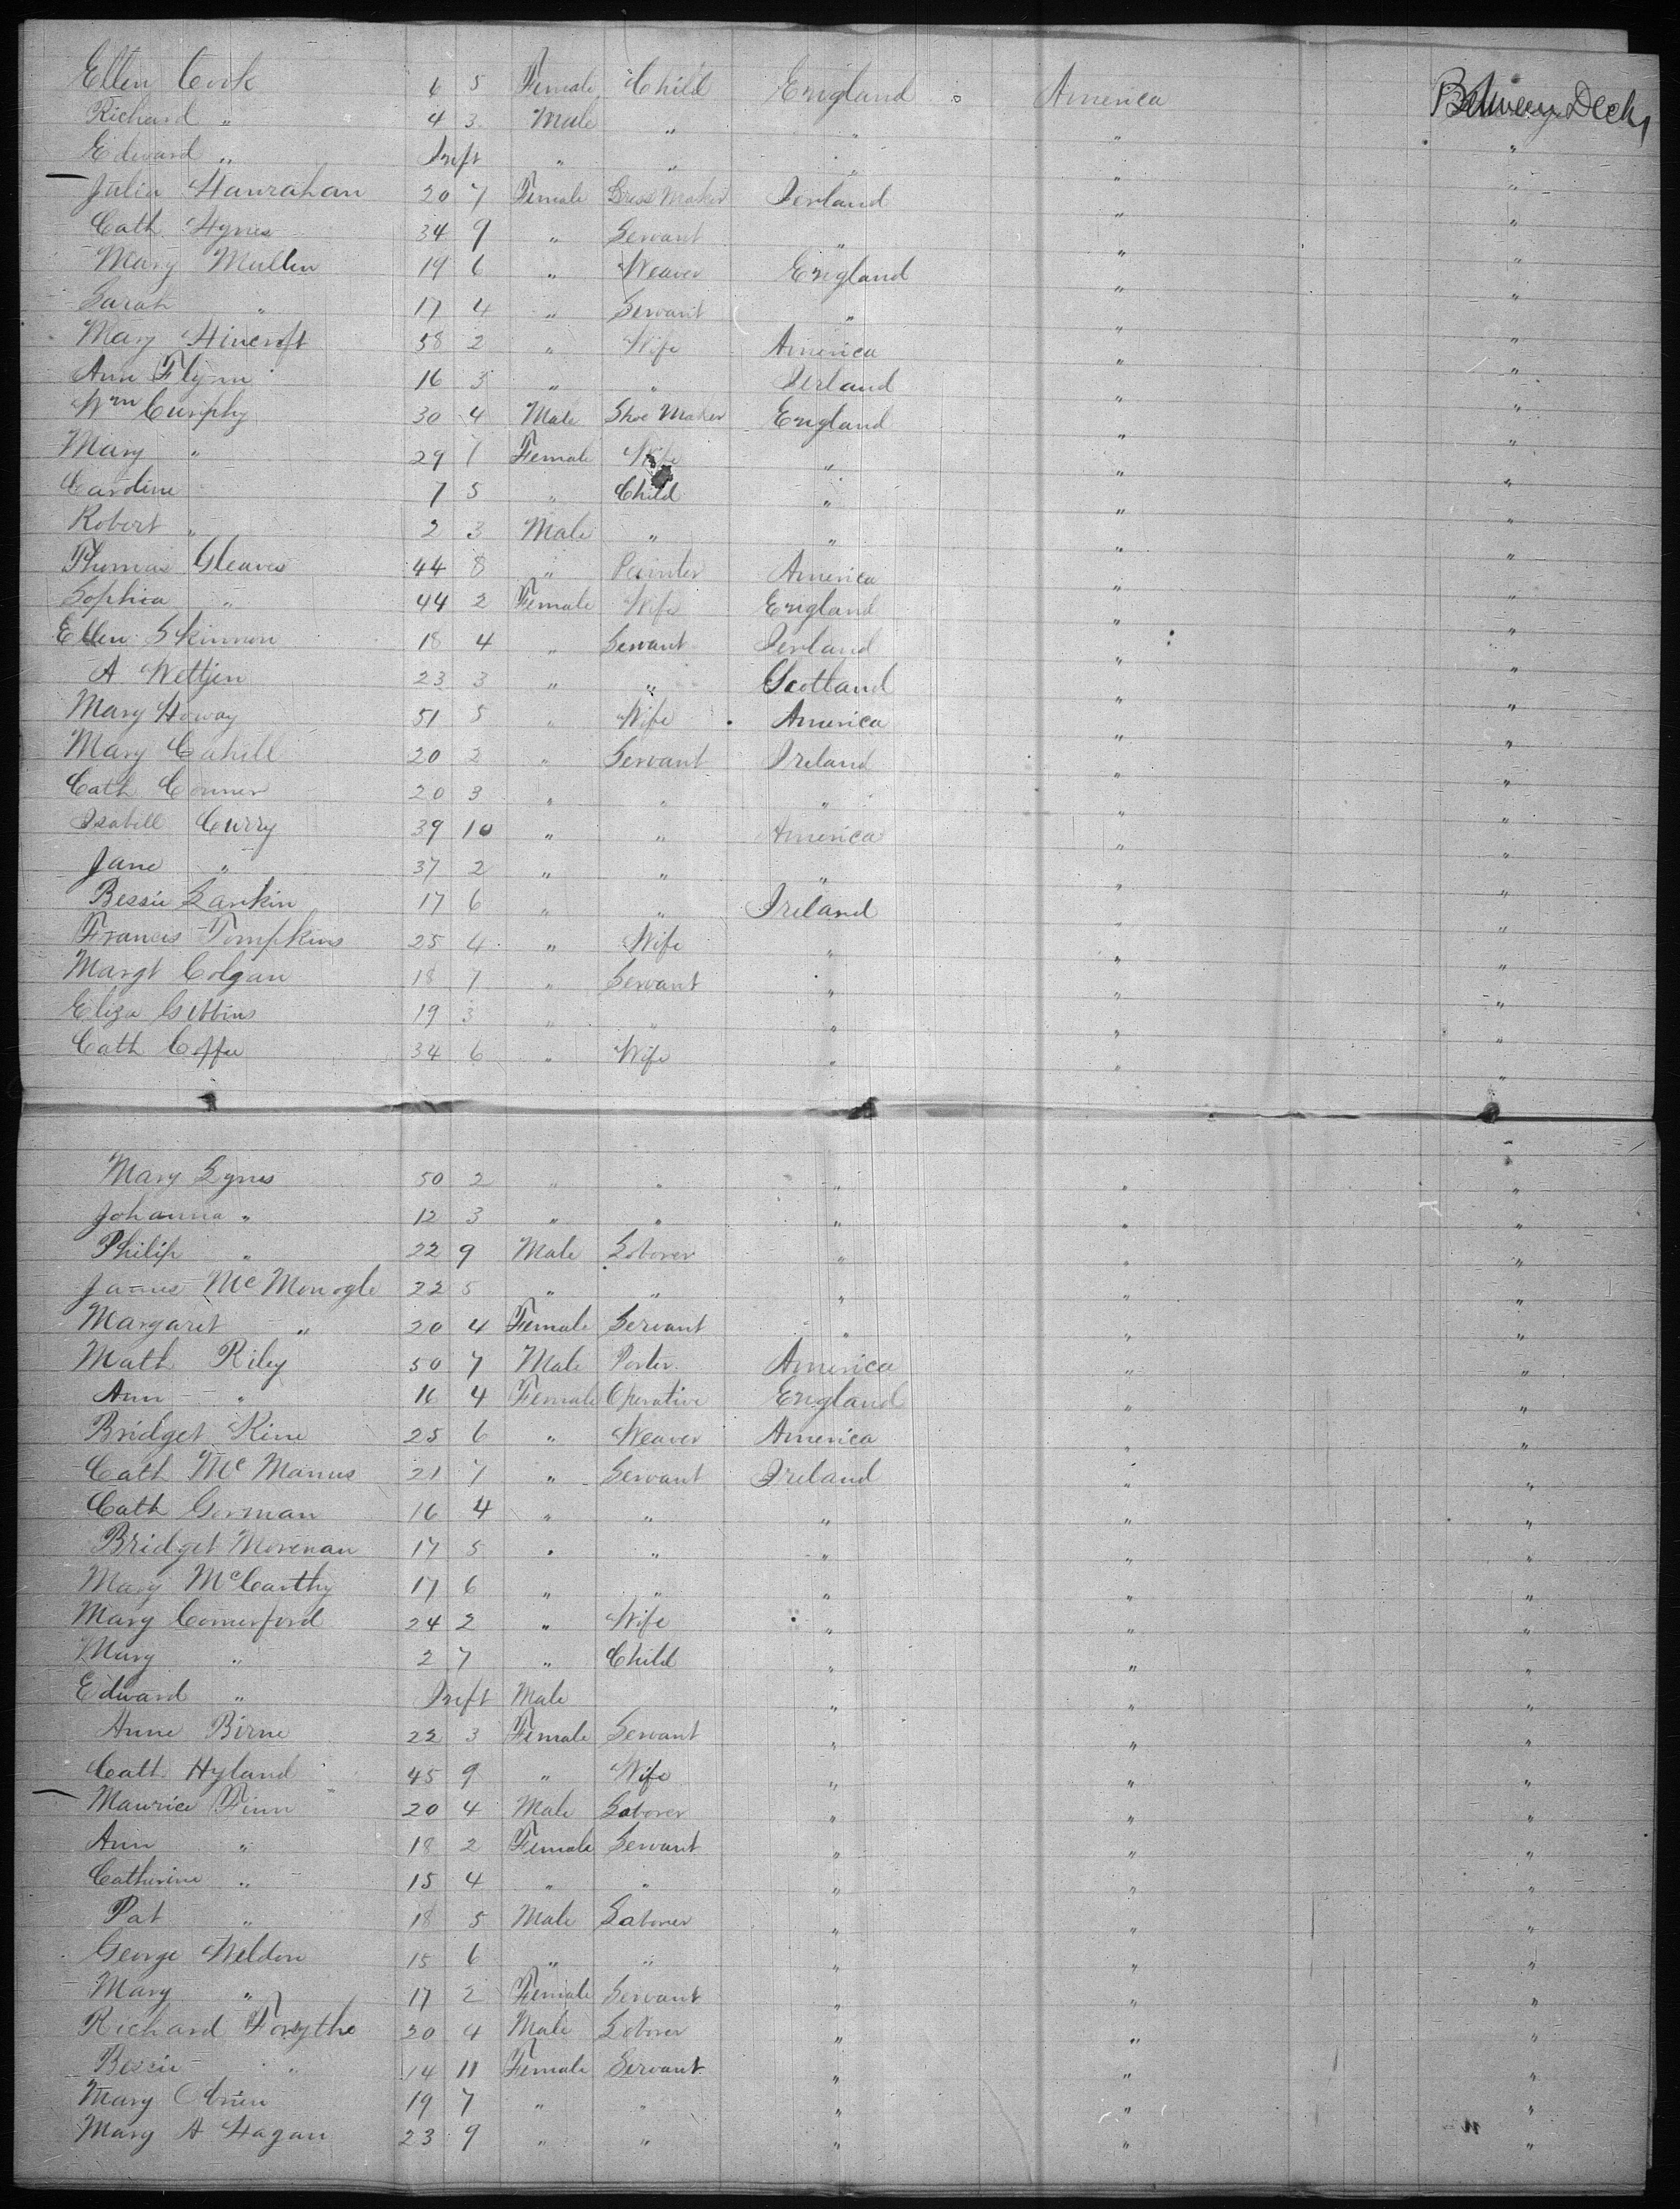 Ellen Cook 6 5 Female Child England America Between Decks
Richard " 4 3 Male " " " "
Edward " Inft " " " " "
Julia Hanrahan 20 7 Female Dress Maker Ierland " "
Cath Hynes 34 9 " Servant " " "
Mary Mullen 19 6 " Weaver England " "
Sarah " 17 4 " Servant " " "
Mary Hincroft 38 2 " Wife America " "
Ann Flynn 16 3 " " Ierland " "
Wm Cunphy 30 4 Male Shoe Maker England " "
Mary " 29 1 Female Wife " " "
Caroline 7 5 " Child " " "
Robert " 2 3 Male " " " "
Thomas Gleaves 44 8 " America " "
Sophia " 44 2 Female Wife England " "
Ellen Skinnon 18 4 " Servant Ierland " "
A Wettjen 23 3 " " Scotland " "
Mary Howay 51 5 " Wife America " "
Mary Cahill 20 2 " Servant Ireland " "
Cath Conner 20 3 " " " " "
Isabell Curry 39 10 " " America " "
Jane " 37 2 " " " " "
Bessie Larkin 17 6 " " Ireland " "
Francis Tompkins 25 4 " Wife " " "
Margt Colgan 18 7 " Servant " " "
Eliza Gibbins 19 3 " " " " "
Cath Coffee 34 6 " Wife " " "
Mary Lynes 50 2 " " " " "
Johanna " 12 3 " " " " "
Philip " 22 9 Male Laborer " " "
James McMonogle 22 5 " " " " "
Margaret " 20 4 Female Servant " " "
Math Riley 50 7 Male Porter America " "
Ann " 16 4 Female Operative England " "
Bridget Kine 25 6 " Weaver America " "
Cath McManus 21 7 " Servant Ireland " "
Cath Gorman 16 4 " " " " "
Bridget Morenan 17 5 " " " " "
Mary McCarthy 17 6 " " " " "
Mary Comerford 24 2 " Wife " " "
Mary " 2 7 " Child " " "
Edward " Inft Male " " "
Anne Birne 22 3 Female Servant " " "
Cath Hyland 45 9 " Wife " " "
Maurice Finn 20 4 Male Laborer " " "
Ann " 18 2 Female Servant " " "
Catherine " 15 4 " " " " "
Pat " 18 5 Male Laborer " " "
George Weldon 15 6 " " " " "
Mary " 17 2 Female Servant " " "
Richard Forsythe 20 4 Male Laborer " " "
Bessie " 14 11 Female Servant " " "
Mary 19 7 " " " " "
Mary A Hagan 23 9 " " " " "